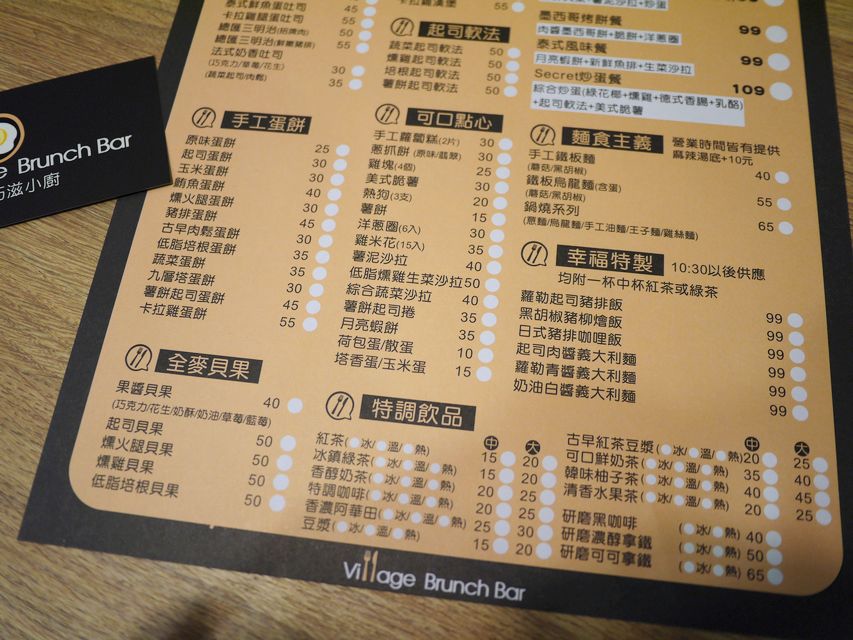 泰式鮮魚蛋吐司 45
卡拉雞腿蛋吐司 55
總匯三明治(招牌肉) 50
總匯三明治(鮮嫩豬排) 55
法式奶香吐司
(巧克力/草莓/花生) 30
(蔬菜起司/肉鬆) 35
手工蛋餅
原味蛋餅 25
起司蛋餅 30
玉米蛋餅 30
鮪魚蛋餅 40
燻火腿蛋餅 30
豬排蛋餅 45
古早肉鬆蛋餅 30
低脂培根蛋餅 35
蔬菜蛋餅 35
九層塔蛋餅 30
薯餅起司蛋餅 45
卡拉雞蛋餅 55
全麥貝果
果醬貝果 40
(巧克力/花生/奶酥/奶油/草莓/藍莓)
起司貝果 50
燻火腿貝果 50
燻雞貝果 50
低脂培根貝果 50
起司軟法
蔬菜起司軟法 50
燻雞起司軟法 50
培根起司軟法 50
薯餅起司軟法 50
可口點心
手工蘿蔔糕(2片) 30
蔥抓餅(原味/翡翠) 30
雞塊(4個) 30
美式脆薯 30
熱狗(3支) 20
薯餅 15
洋蔥圈(6入) 30
雞米花(15入) 30
薯泥沙拉 30
低脂燻雞生菜沙拉 50
綜合蔬菜沙拉 40
薯餅起司捲 35
月亮蝦餅 35
荷包蛋/散蛋 10
塔香蛋/玉米蛋 15
墨西哥烤餅餐 99
肉醬墨西哥餅+脆餅+洋蔥圈
泰式風味餐 99
月亮蝦餅+新鮮魚排+生菜沙拉
Secret炒蛋餐 109
綜合炒蛋(綠花椰+燻雞+德式香腸+乳酪)
+起司軟法+美式脆薯
麵食主義 營業時間皆有提供
麻辣湯底+10元
手工鐵板麵 40
(蘑菇/黑胡椒)
鐵板烏龍麵(含蛋) 55
(蘑菇/黑胡椒)
鍋燒系列 65
(意麵/烏龍麵/手工油麵/王子麵/雞絲麵)
幸福特製 10:30以後供應
均附一杯中杯紅茶或綠茶
蘿勒起司豬排飯 99
黑胡椒豬柳燴飯 99
日式豬排咖哩飯 99
起司肉醬義大利麵 99
蘿勒青醬義大利麵 99
奶油白醬義大利麵 99
特調飲品 中 大
紅茶(冰/溫/熱) 15 20
冰鎮綠茶(冰/溫/熱) 15 20
香醇奶茶(冰/溫/熱) 20 25
特調咖啡(冰/溫/熱) 20 25
香濃阿華田(冰/溫/熱) 25 30
豆漿(冰/溫/熱) 15 20
中 大
古早紅茶豆漿(冰/溫/熱) 20 25
可口鮮奶茶(冰/溫/熱) 35 40
韓味柚子茶(冰/溫/熱) 40 45
清香水果茶(冰/溫/熱) 20 25
研磨黑咖啡 (冰/熱) 40
研磨濃醇拿鐵 (冰/熱) 50
研磨可可拿鐵 (冰/熱) 65
Village Brunch Bar
e Brunch Bar
巧滋小廚